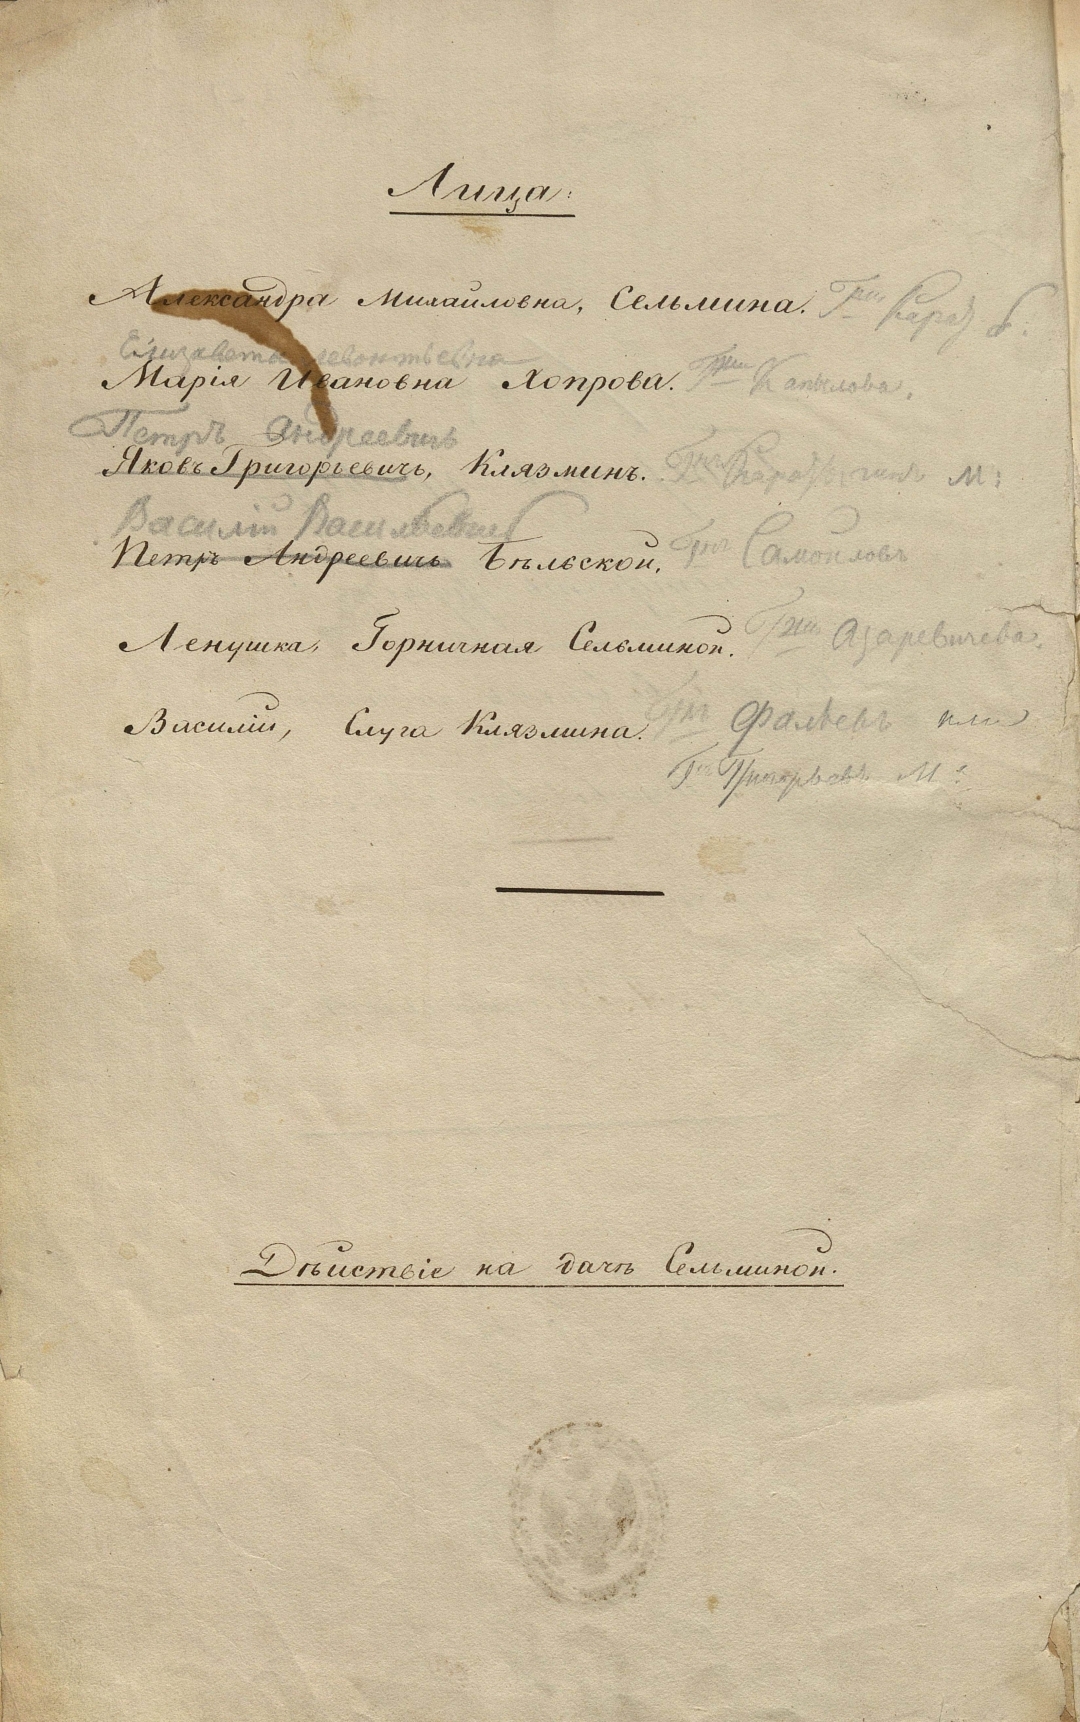 Лица:
Александра Михайловна, Сельмина. Г-жи Карат б:
Елизавета Леонтьевна
Марія Ивановна Хопрова. Г-жи Капылова.
Петръ Андреевичъ
Яковъ Григорьевичь, Клязминъ. Каратыгинъ М:
Василій Васильевичъ
Петръ Андреевичь Бѣльской, Г-нъ Самойловъ
Ленушка, Горничная Сельминой. Г-жи Азаревичева.
Василій, Слуга Клязмина. Г-нъ Фалѣевъ или
Г-нъ Григорьевъ М:
Дѣйствіе на дачѣ Сельминой.